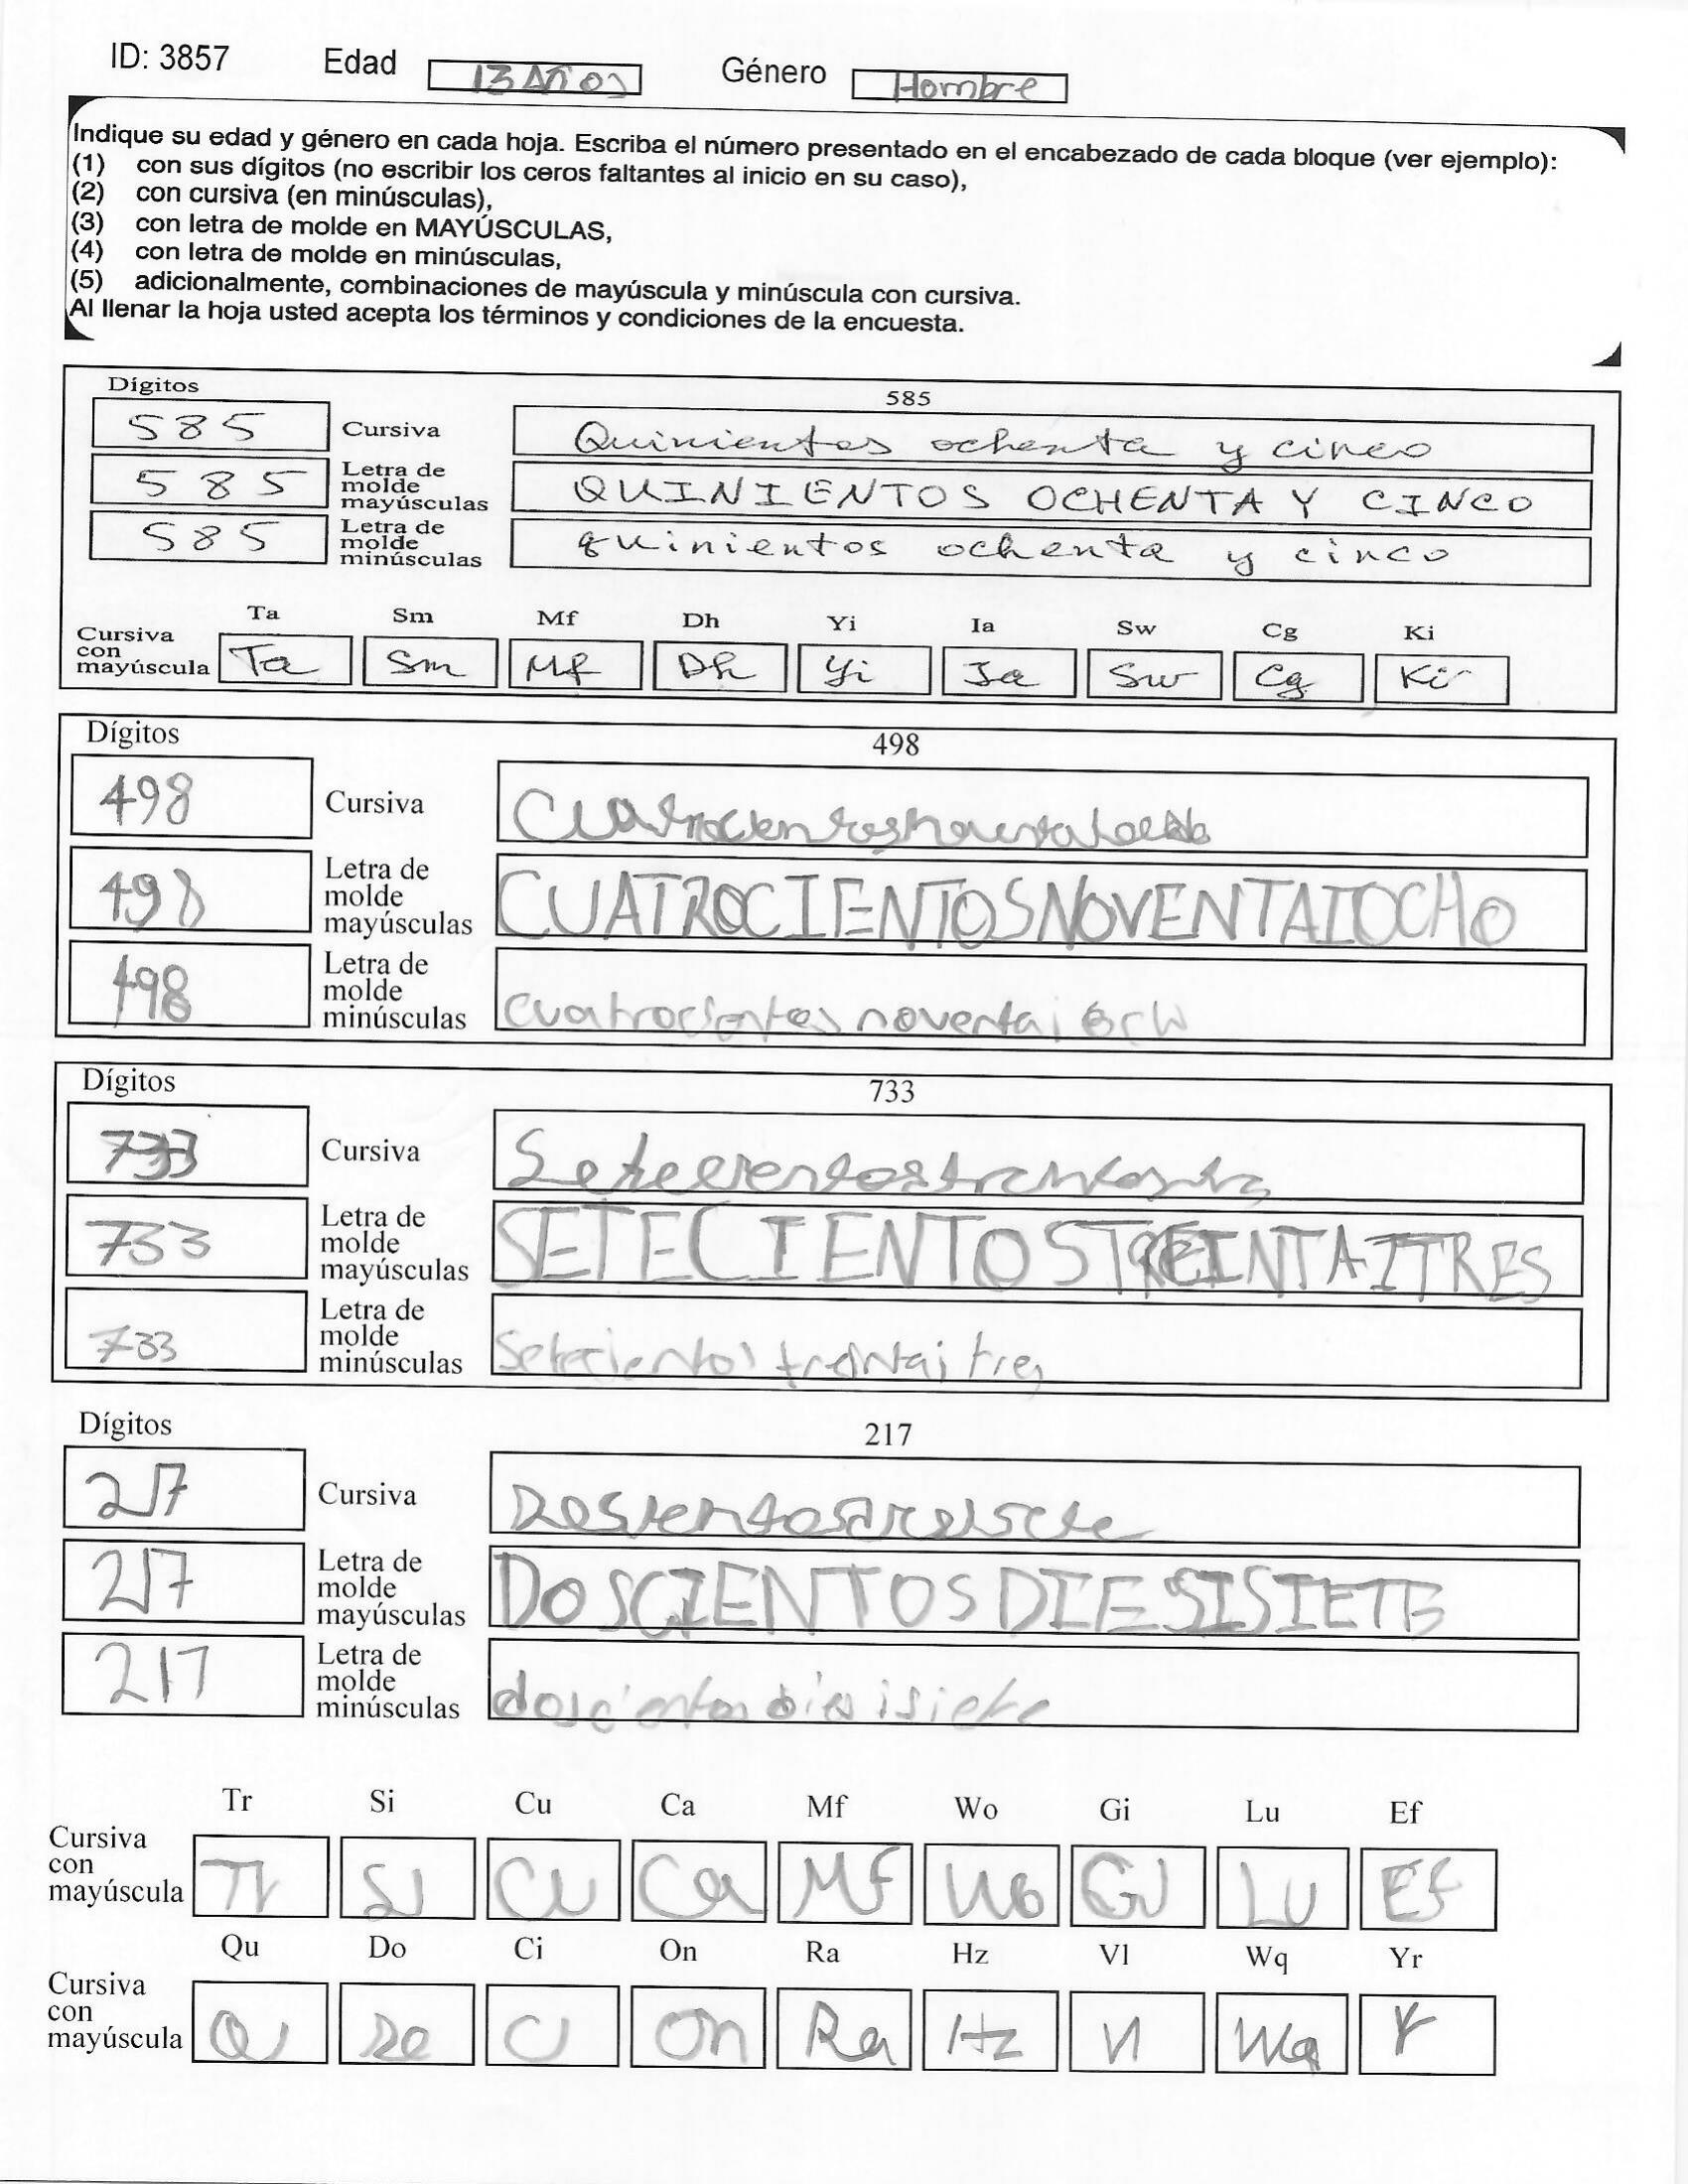 ID: 3857 Edad 13 Años Género Hombre
Indique su edad y género en cada hoja. Escriba el número presentado en el encabezado de cada bloque (ver ejemplo):
(1) con sus dígitos (no escribir los ceros faltantes al inicio en su caso),
(2) con cursiva (en minúsculas),
(3) con letra de molde en MAYÚSCULAS,
(4) con letra de molde en minúsculas,
(5) adicionalmente, combinaciones de mayúscula y minúscula con cursiva.
Al llenar la hoja usted acepta los términos y condiciones de la encuesta.
Dígitos 585
585 Cursiva Quinientos ochenta y cinco
585 Letra de molde mayúsculas QUINIENTOS OCHENTA Y CINCO
585 Letra de molde minúsculas quinientos ochenta y cinco
Ta Sm Mf Dh Yi Ia Sw Cg Ki
Cursiva con mayúscula Ta Sm Mf Dh Yi Ia Sw Cg Ki
Dígitos 498
498 Cursiva
498 Letra de molde mayúsculas CUATROCIENTOSNOVENTAIOCHO
498 Letra de molde minúsculas noventai
Dígitos 733
733 Cursiva
733 Letra de molde mayúsculas SETECIENTOSTREINTAITRES
733 Letra de molde minúsculas setecientos tres
Dígitos 217
217 Cursiva
217 Letra de molde mayúsculas DOSCIENTOS DIESISIETE
217 Letra de molde minúsculas
Tr Si Cu Ca Mf Wo Gi Lu Ef
Cursiva con mayúscula Tr Si Cu Ca Mf Wo Gi Lu Ef
Qu Do Ci On Ra Hz Vl Wq Yr
Cursiva con mayúscula Qu Do Ci On Ra Hz Vl Wq